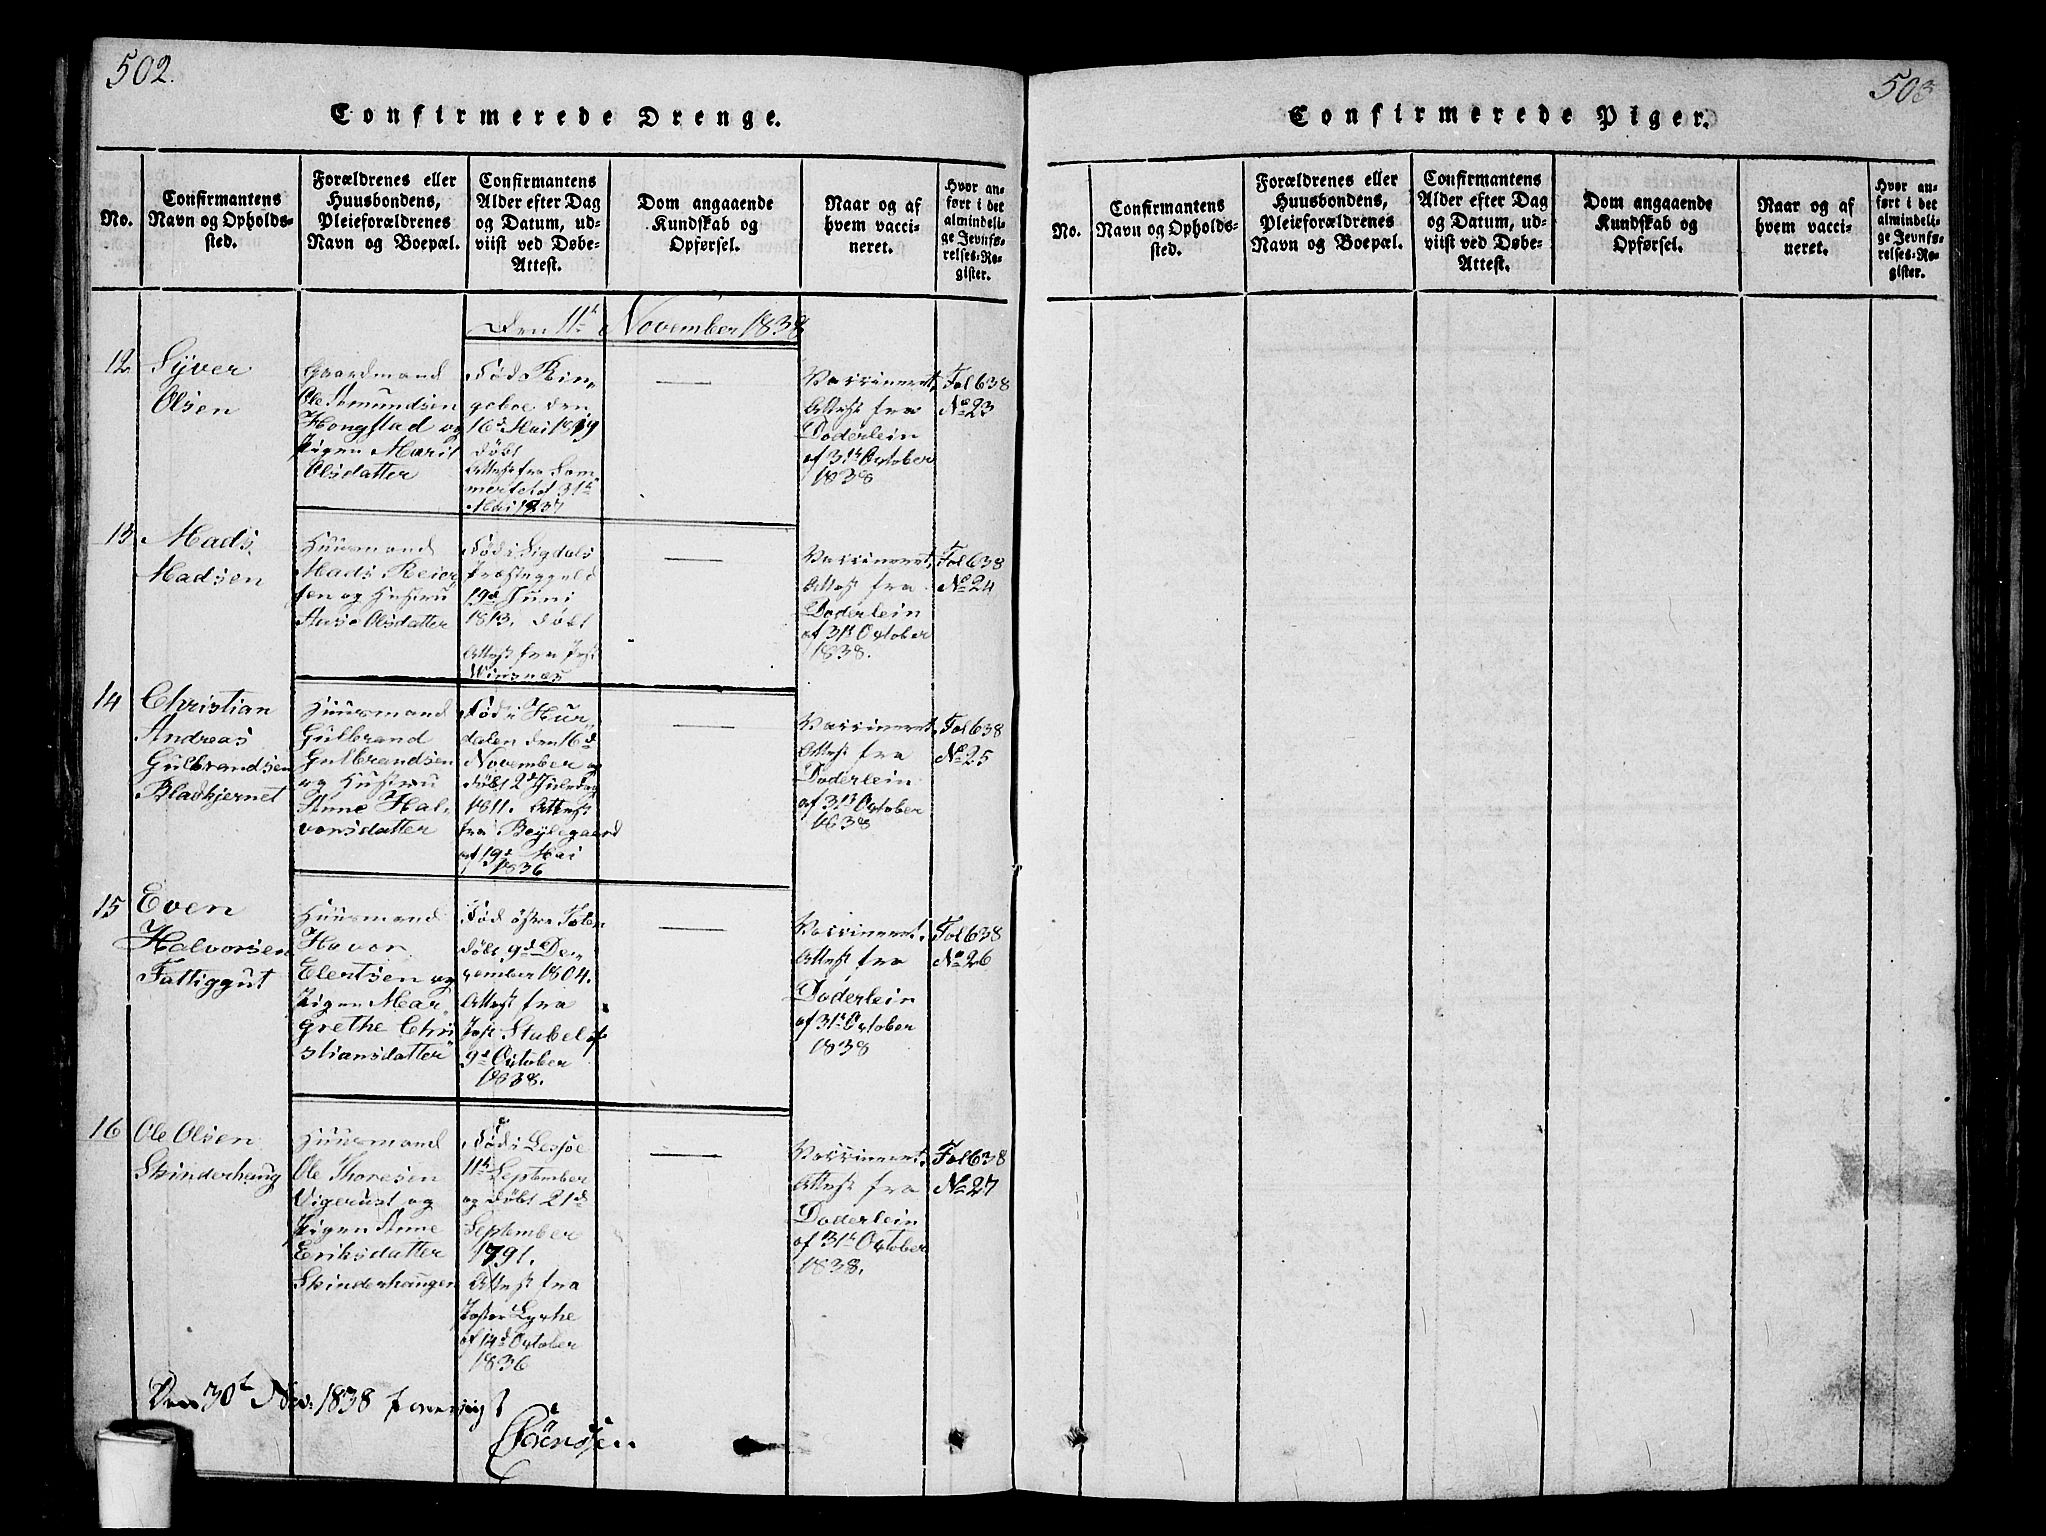 502.
Confirmerede Drenge.
No.
Confirmantens
Navn og Opholds-
sted.
Forældrenes eller
Huusbondens,
Pleieforældrenes
Navn og Boepæl.
Confirmantens
Alder efter Dag
og Datum, ud-
viist ved Døbe-
Attest.
Dom angaaende
Kundskab og
Opførsel.
Naar og af
hvem vacci-
neret.
Hvor an-
ført i det
almindeli-
ge Jevnfø-
relses-Re-
gister.
Den 11te November 1838
12
Syver
Olsen
Gaardmand
Ole Amundsen
Hongstad og
Pigen Marit
Olsdatter
Fød i Rin-
goboe den
16de Mai 1819
døbt
Attest fra Som-
merfeldt 31te
Mai 1837
Vaccineret,
Attest fra
Doderlein
af 31te October
1838
Fol 638
No 23
13
Mads
Madsen
Huusmand
Mads Reier-
sen og Hustru
Anse Olsdatter
Fød i Sigdals
Præstegjeld
19de Juni
1813. døbt
Attest fra Pest
Winsnes
Vaccineret,
Attest fra
Doderlein
af 31te October
1838.
Fol 638
No 24
14
Christian
Andreas
Gulbrandsen
Bladkjernet
Huusmand
Gulbrand
Gulbrandsen
og Hustru
Anne Hal-
vorsdatter
Fød i Hur-
dalen den 16de
November og
døbt 2d Juledag
1811. Attest
fra Bøylegaard
af 19de Mai
1836
Vaccineret,
Attest fra
Doderlein
af 31te October
1838
Fol 638
No 25
15
Even
Halvorsen
Fattiggut
Huusmand
Havor
Elertsen og
Pigen Mar-
grethe Chri-
stiansdatter
Fød østre Toten
døbt 9de De-
cember 1804.
Attest fra
Past. Stabel af
9de October
1838.
Vaccineret,
Attest fra
Doderlein
af 31te October
1838
Fol 638
No 26
16
Ole Olsen
Skinderhaug
Huusmand
Ole Thoresen
Vigerust og
Pigen Anne
Eriksdatter
Skinderhaugen
Fød i Lessøe
11te September
og døbt 21de
September
1791.
Attest fra
Pastor Lyche
af 14de October
1836
Vaccineret,
Attest fra
Doderlein
af 31te October
1838.
Fol 638
No 27
Den 30te Nov: 1838
503
Confirmerede Piger.
No.
Confirmantens
Navn og Opholds-
sted.
Forældrenes eller
Huusbondens,
Pleieforældrenes
Navn og Boepæl.
Confirmantens
Alder efter Dag
og Datum, ud-
viist ved Døbe-
Attest.
Dom angaaende
Kundskab og
Opførsel.
Naar og af
hvem vacci-
neret.
Hvor an-
ført i det
almindeli-
ge Jevnfø-
relses-Re-
gister.